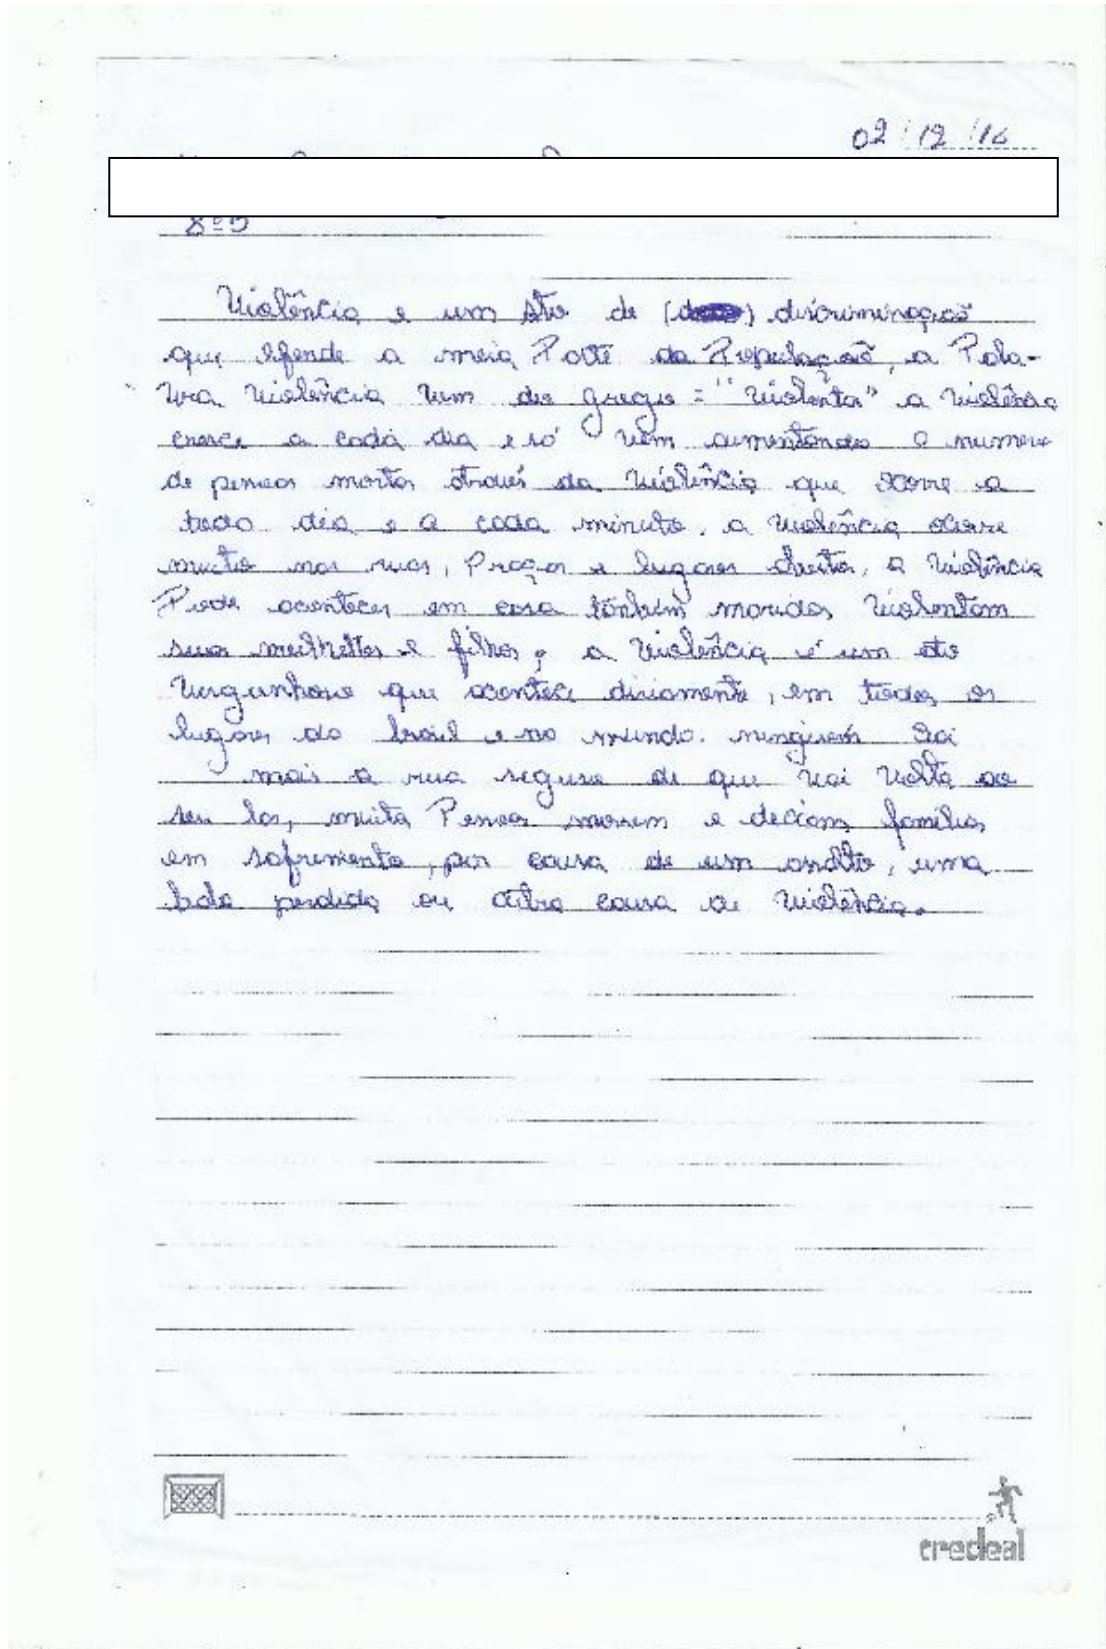 02/12/16
8º
Violência e um ato de (      ) discriminação
que efende a meia Parte da Propulação, a Pala-
vra violência vem do grego = "violenta" a violência
cresce a cada dia e só vem aumentando o numero
de pessoas mortas através da violência que ocorre a
todo dia e a cada minuto, a violência ocorre
muito nas ruas, Praças e lugares abertos, a violência
Pode acontecer em casa tanbém maridos violentam
suas mulhelhes e filhos, a violência é um ato
vergonhoso que acontece diriamente, em todos os
lugares do brasil e no mundo. ninguém sai
mais a rua seguro de que vai volta ao
seu lar, muita Pessoas morrem e deciam familias
em sofremento, por causa de um assalto, uma
bala perdida ou outra causa de violência.
credeal